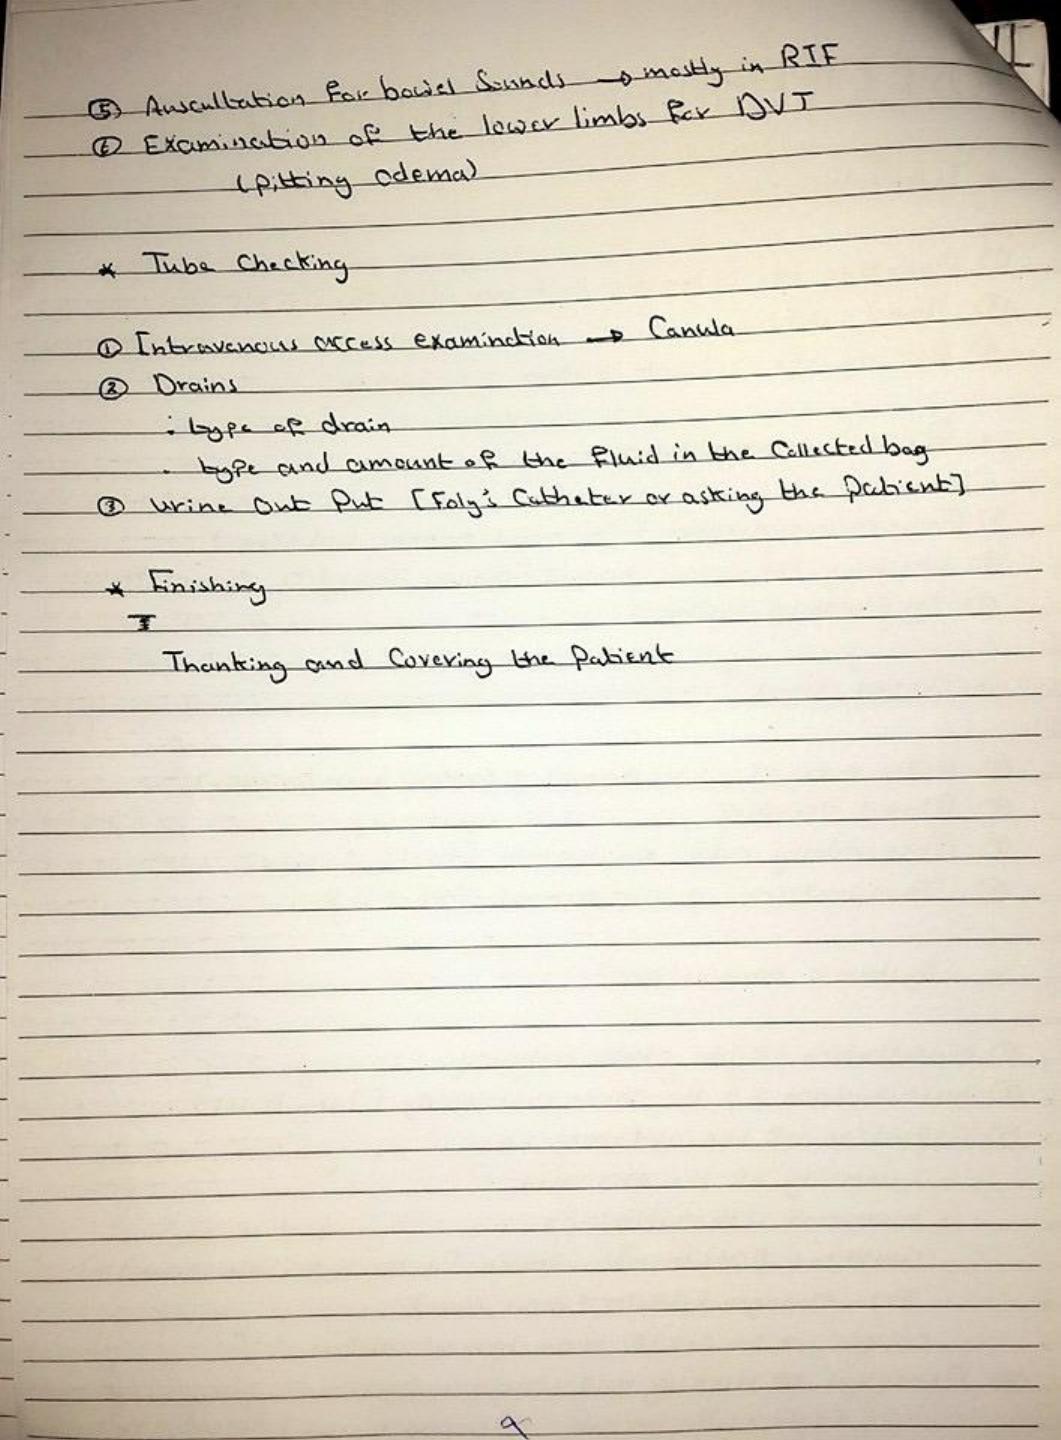 ⑤ Auscultation for bowel Sounds → mostly in RIF
⑥ Examination of the lower limbs for DVT
(pitting odema)
* Tube Checking
① Intravenous access examinction → Canula
② Drains
. type of drain
. type and amount of the fluid in the Collected bag
③ Urine Out Put [Foly's Catheter or asking the patient]
* Finishing
Thanking and Covering the Patient
9